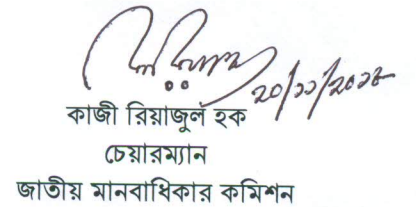 ২০/১১/২০১৬
কাজী রিয়াজুল হক
চেয়ারম্যান
জাতীয় মানবাধিকার কমিশন